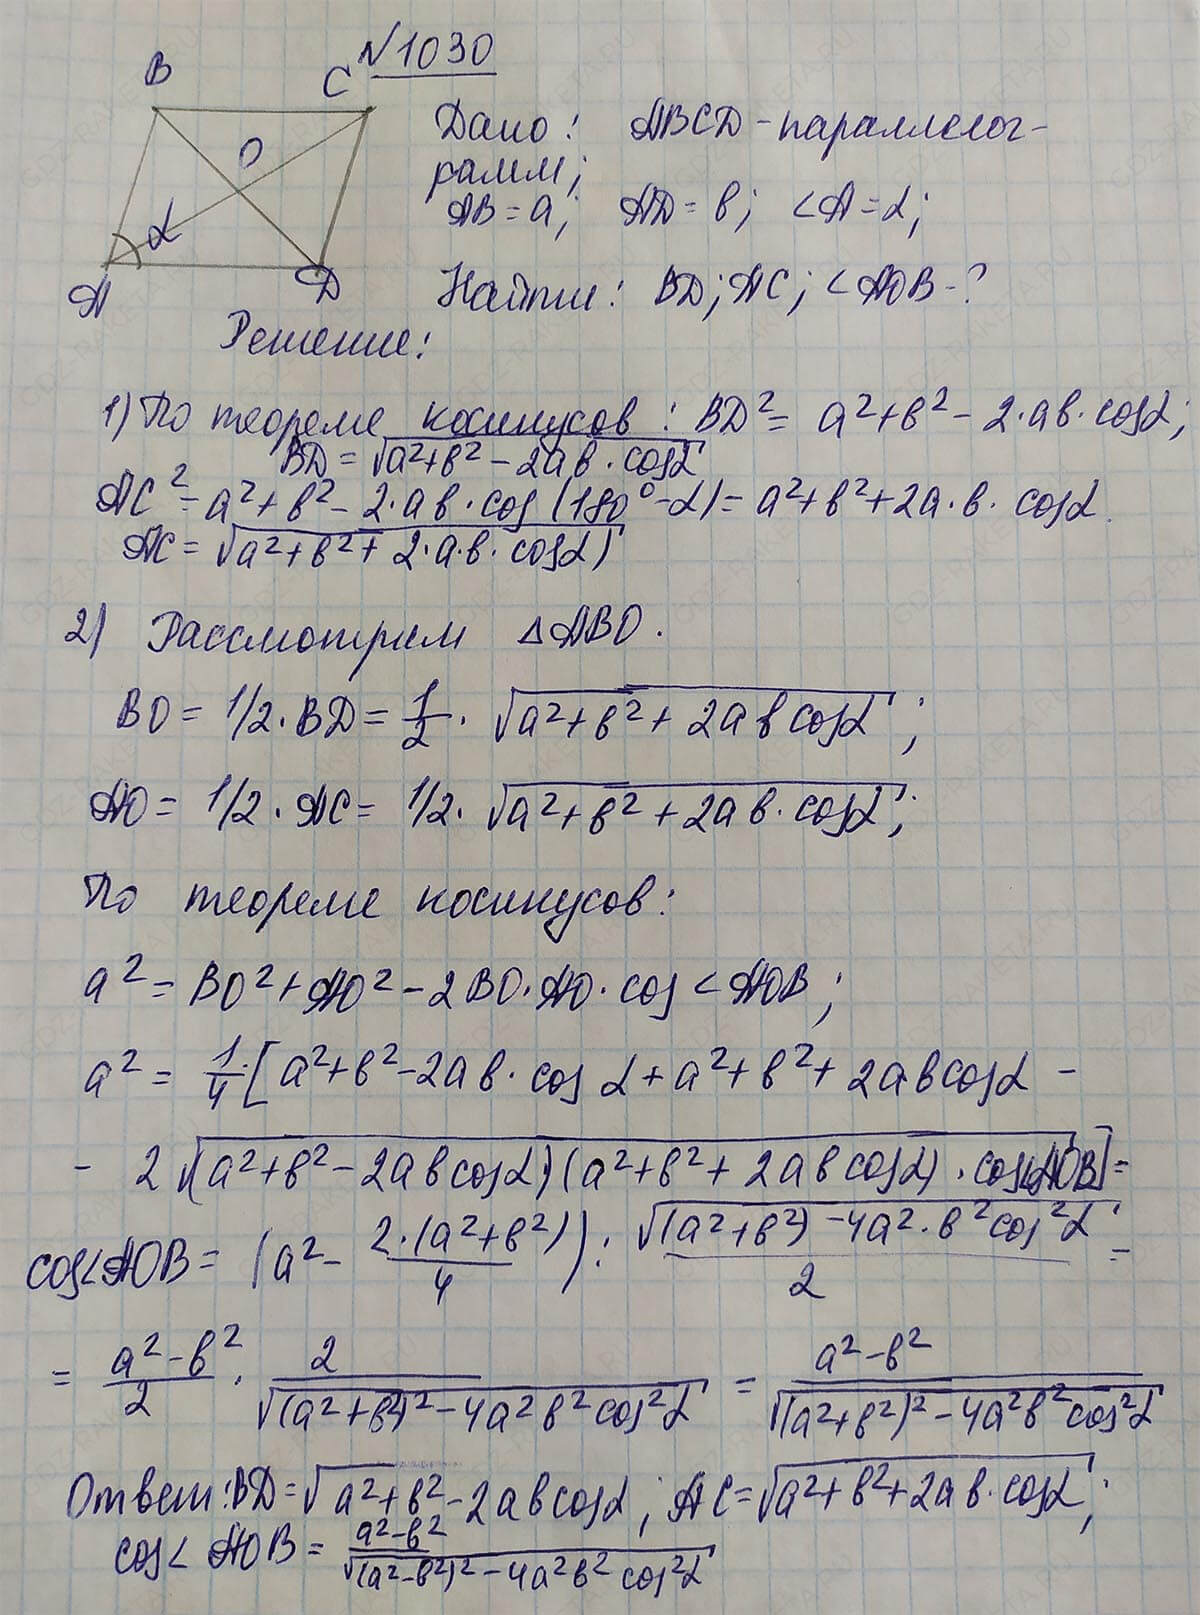 №1030
B C
O
α
A D
Дано: ABCD - параллелог-
рамм;
AB = a; AD = b; ∠A = α;
Найти: BD; AC; ∠AOB - ?
Решение:
1) По теореме косинусов: BD² = a² + b² - 2·ab·cosα;
BD = √(a² + b² - 2ab·cosα)
AC² = a² + b² - 2·ab·cos(180° - α) = a² + b² + 2a·b·cosα.
AC = √(a² + b² + 2·a·b·cosα)
2) Рассмотрим △ABO.
BO = 1/2·BD = 1/2·√(a² + b² + 2ab cosα);
AO = 1/2·AC = 1/2·√(a² + b² + 2ab·cosα);
По теореме косинусов:
a² = BO² + AO² - 2BO·AO·cos∠AOB;
a² = 1/4·[a² + b² - 2ab·cosα + a² + b² + 2ab cosα -
- 2√((a² + b² - 2ab cosα)(a² + b² + 2ab cosα))·cos∠AOB] =
cos∠AOB = (a² - 2·(a² + b²)/4) : √((a² + b²) - 4a²·b² cos²α)/2 =
= (a² - b²)/2 · 2/√((a² + b²)² - 4a²b² cos²α) = (a² - b²)/√((a² + b²)² - 4a²b² cos²α)
Ответ: BD = √(a² + b² - 2ab cosα); AC = √(a² + b² + 2ab·cosα);
cos∠AOB = (a² - b²)/√((a² - b²)² - 4a²b² cos²α)